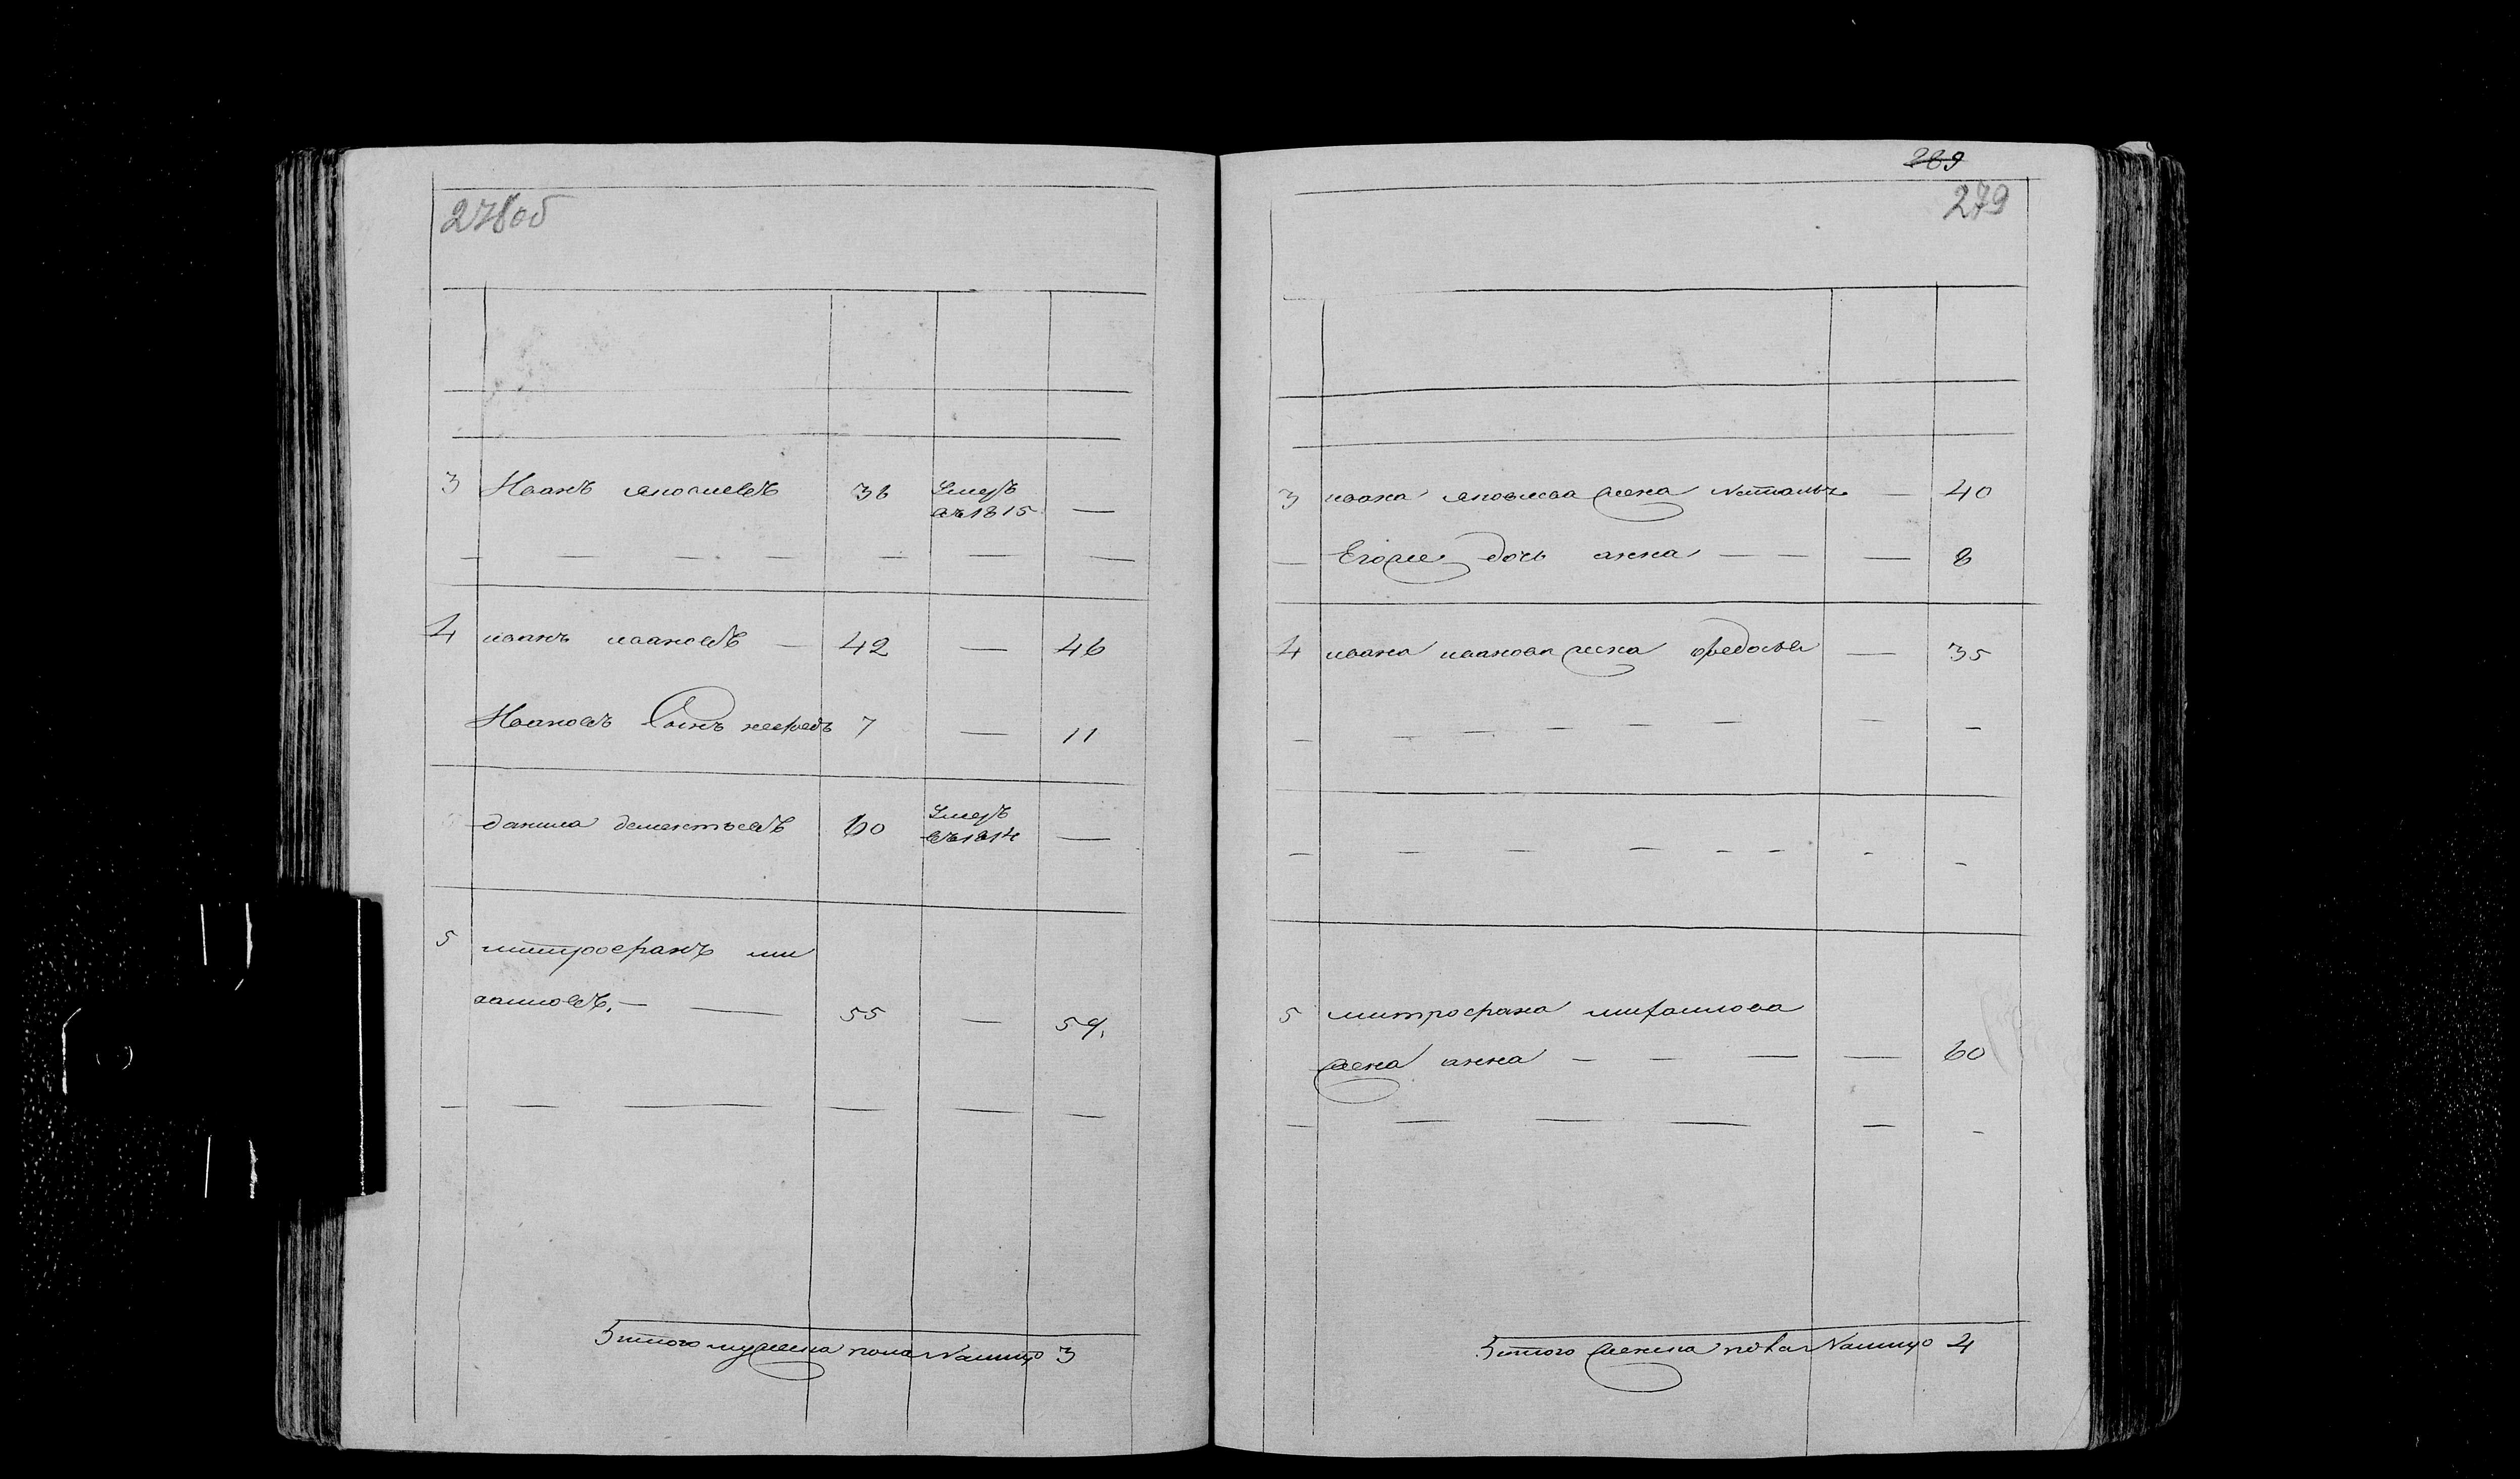 278об
3 Иванъ яковлевъ 36 Умеръ
въ 1815 —
4 иванъ ивановъ — 42 — 46
Ивановъ Сынъ нефедъ 7 — 11
данила дементьевъ 60 Умеръ
въ 1814 —
5 митрофанъ ми
хаиловъ. — — 55 — 59.
Итого мужеска пола Налицо 3
289
279
3 ивана яковлева жена Наталья — 40
Егоже дочь анна — — — 8
4 ивана иванова жена федосья — 35
5 митрофана михаилова
жена анна — — — — 60
Итого женска пола Налицо 4